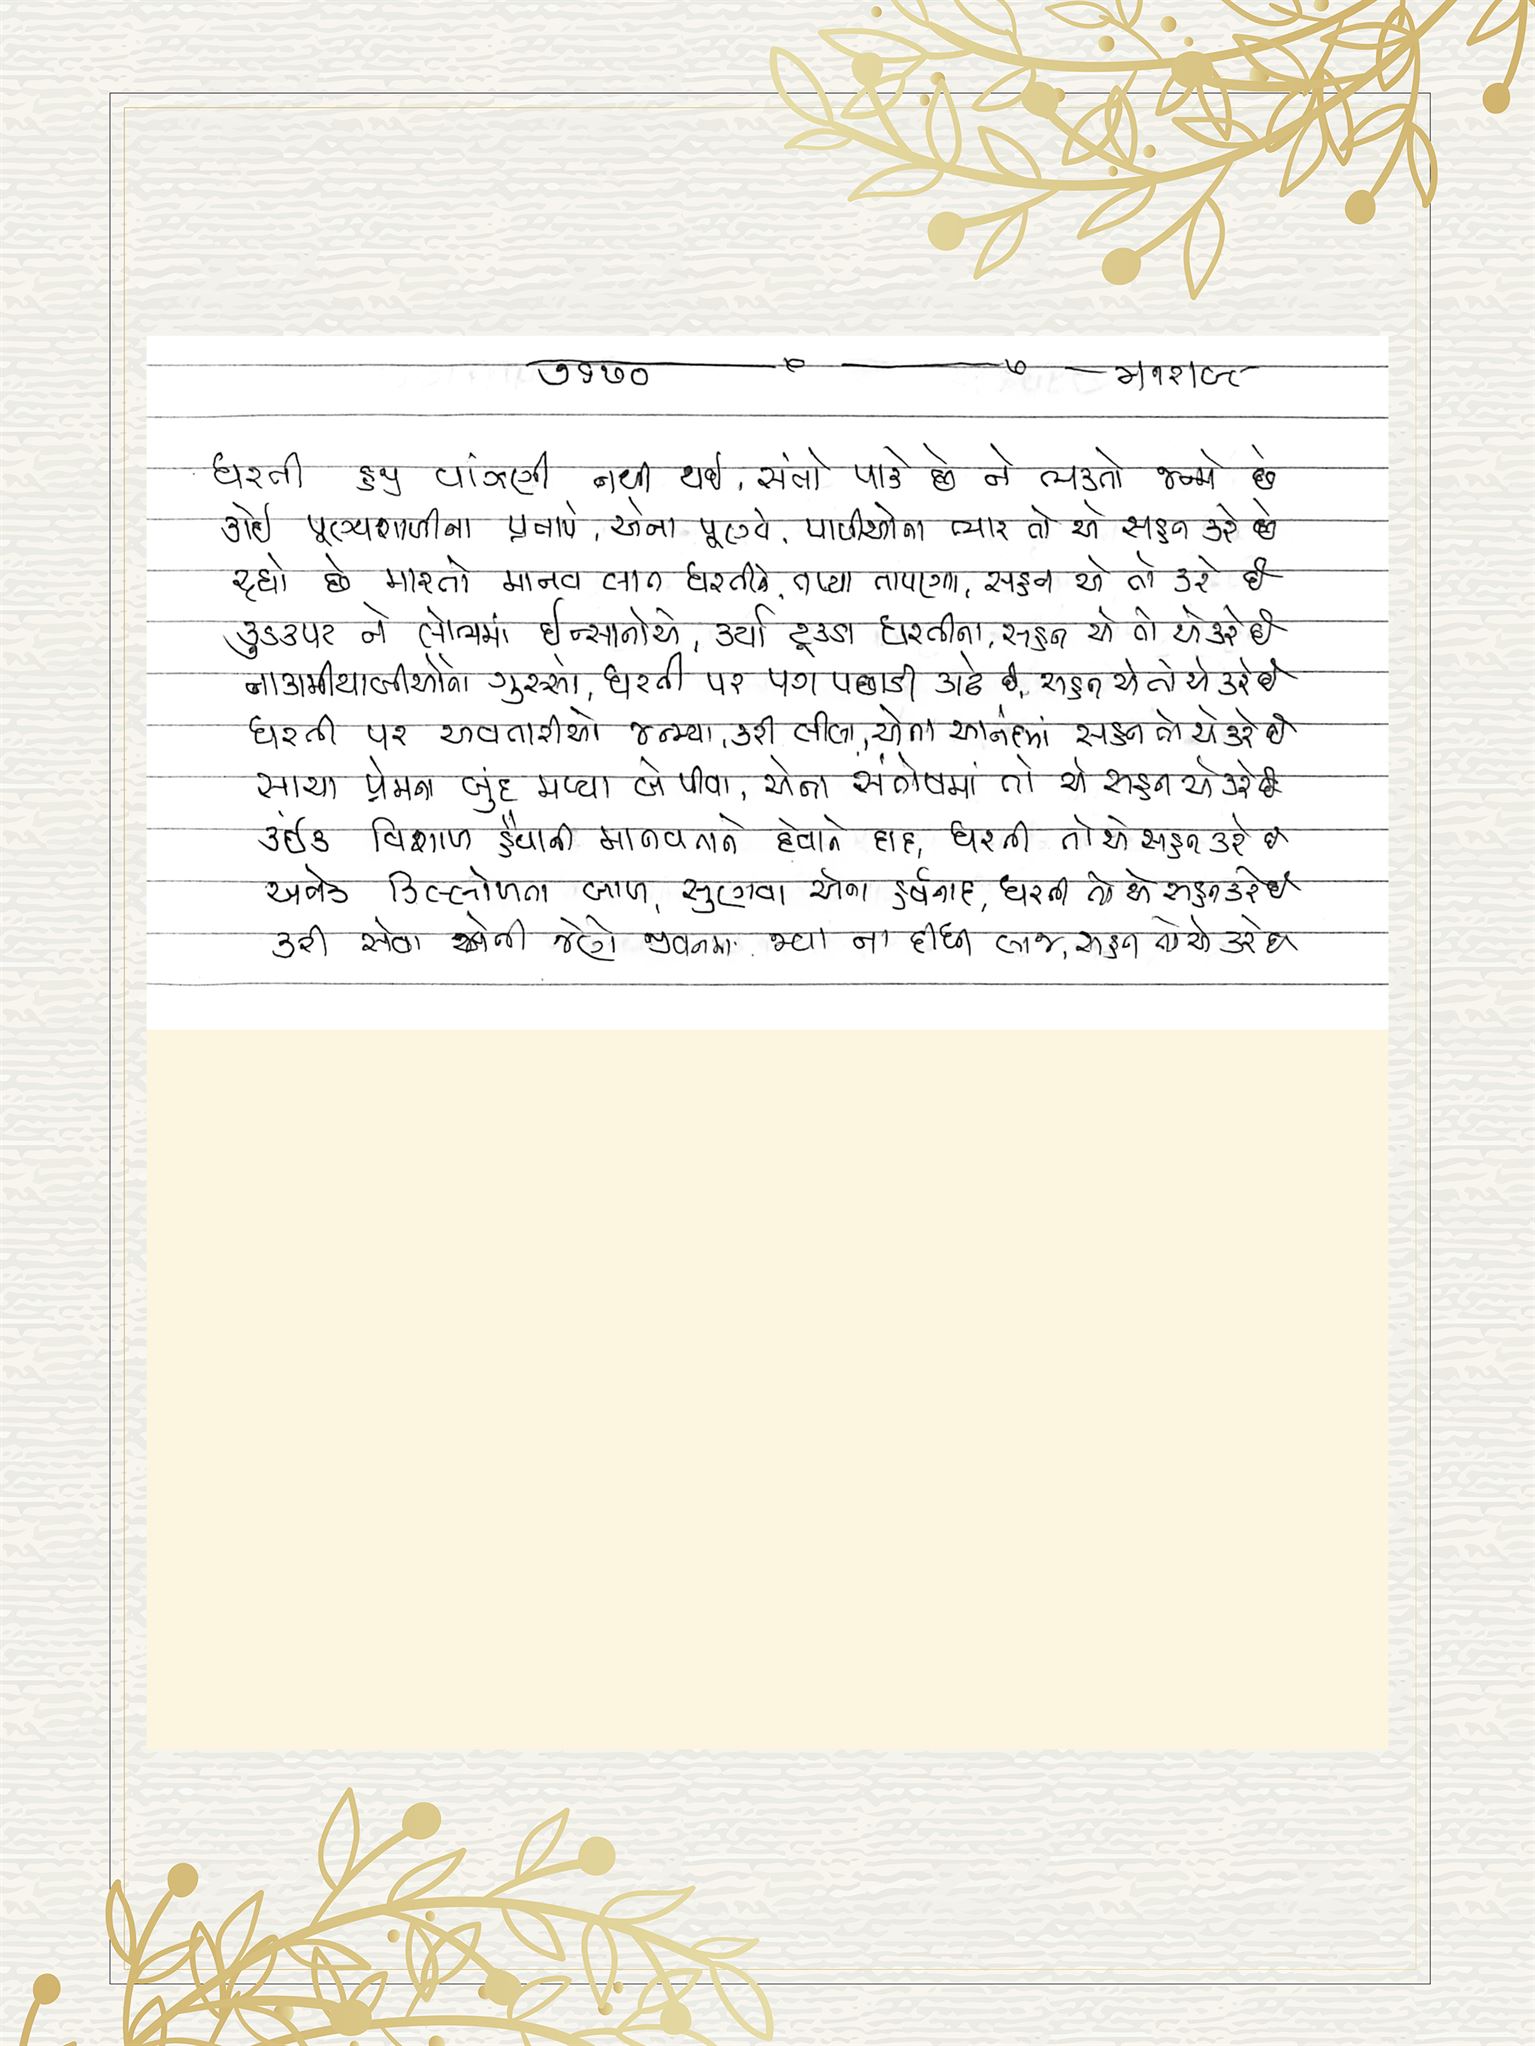 ૭૬૭૦
ધરતી હજુ વાંઝણી નથી થઈ, સંતો પાકે છે ને ભક્તો જન્મે છે
કોઈ પૂણ્યશાળીના પ્રતાપે, એના પૂણ્યે, પાપીઓના ભાર તો એ સહન કરે છે
રહ્યો છે મારતો માનવ લાત ધરતીને, તપ્યા તાપણા, સહન એ તો કરે છે
કૂડકપટ ને લોભમાં ઈન્સાનોએ, કર્યા ટૂકડા ધરતીના, સહન એ તો એ કરે છે
નાકામીયાબીઓનો ગુસ્સો, ધરતી પર પગ પછાડી કાઢે છે, સહન એ તો એ કરે છે
ધરતી પર અવતારીઓ જન્મ્યા, કરી લીલા, એના આનંદમાં સહન તો એ કરે છે
સાચા પ્રેમના બુંદ મળ્યા જે પીવા, એના સંતોષમાં તો એ સહન એ કરે છે
કંઈક વિશાળ હૈયાની માનવતાને દેવાને દાદ, ધરતી તો એ સહન કરે છે
અનેક કિલ્લોળતા બાળ, સુણવા એના હર્ષનાદ, ધરતી તો એ સહન કરે છે
કરી સેવા એની જેણે જીવનમાં ના દીધી લાજ, સહન તો એ કરે છે